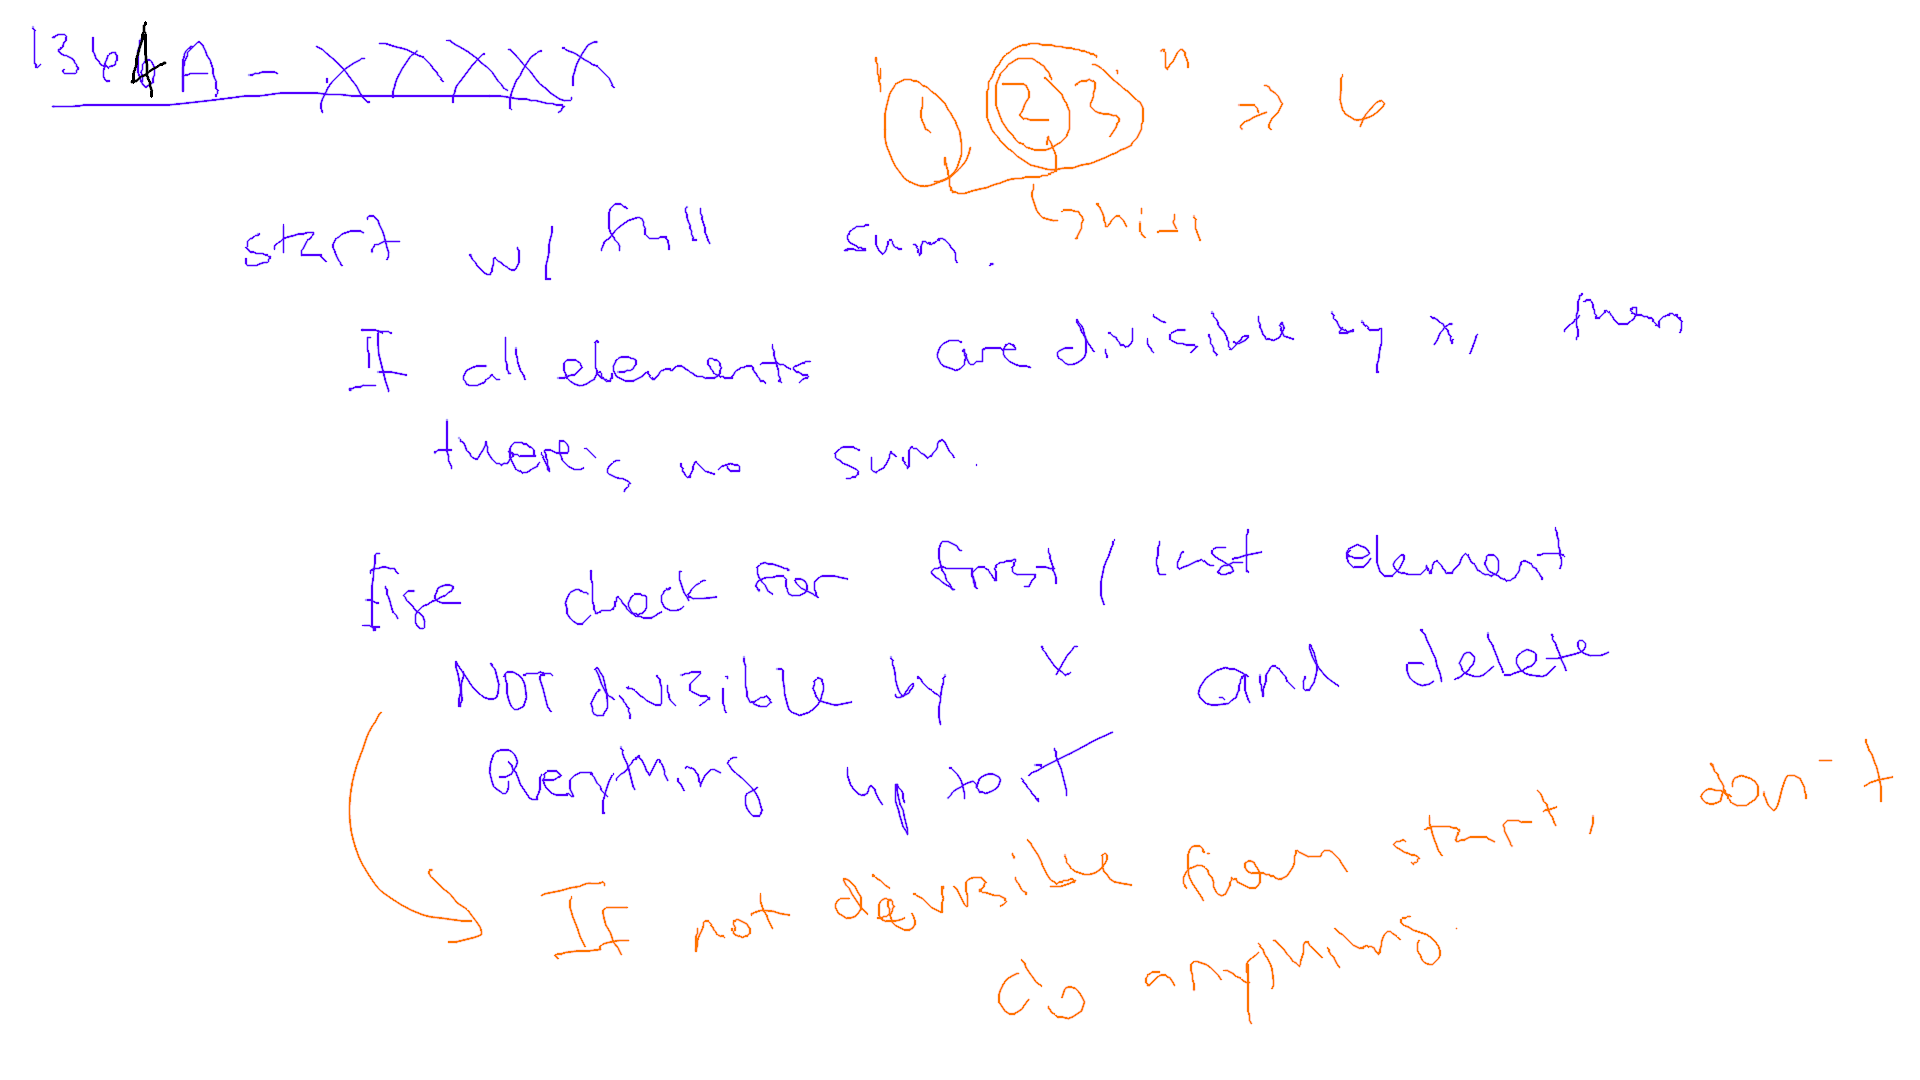 1364A - XXXXX
1 1 2 3 n => 6
start w/ full sum.
If all elements are divisible by x, then
there's no sum.
Else check for first / last element
NOT divisible by x and delete
Everything up to it
If not divisible from start, don't
do anything.